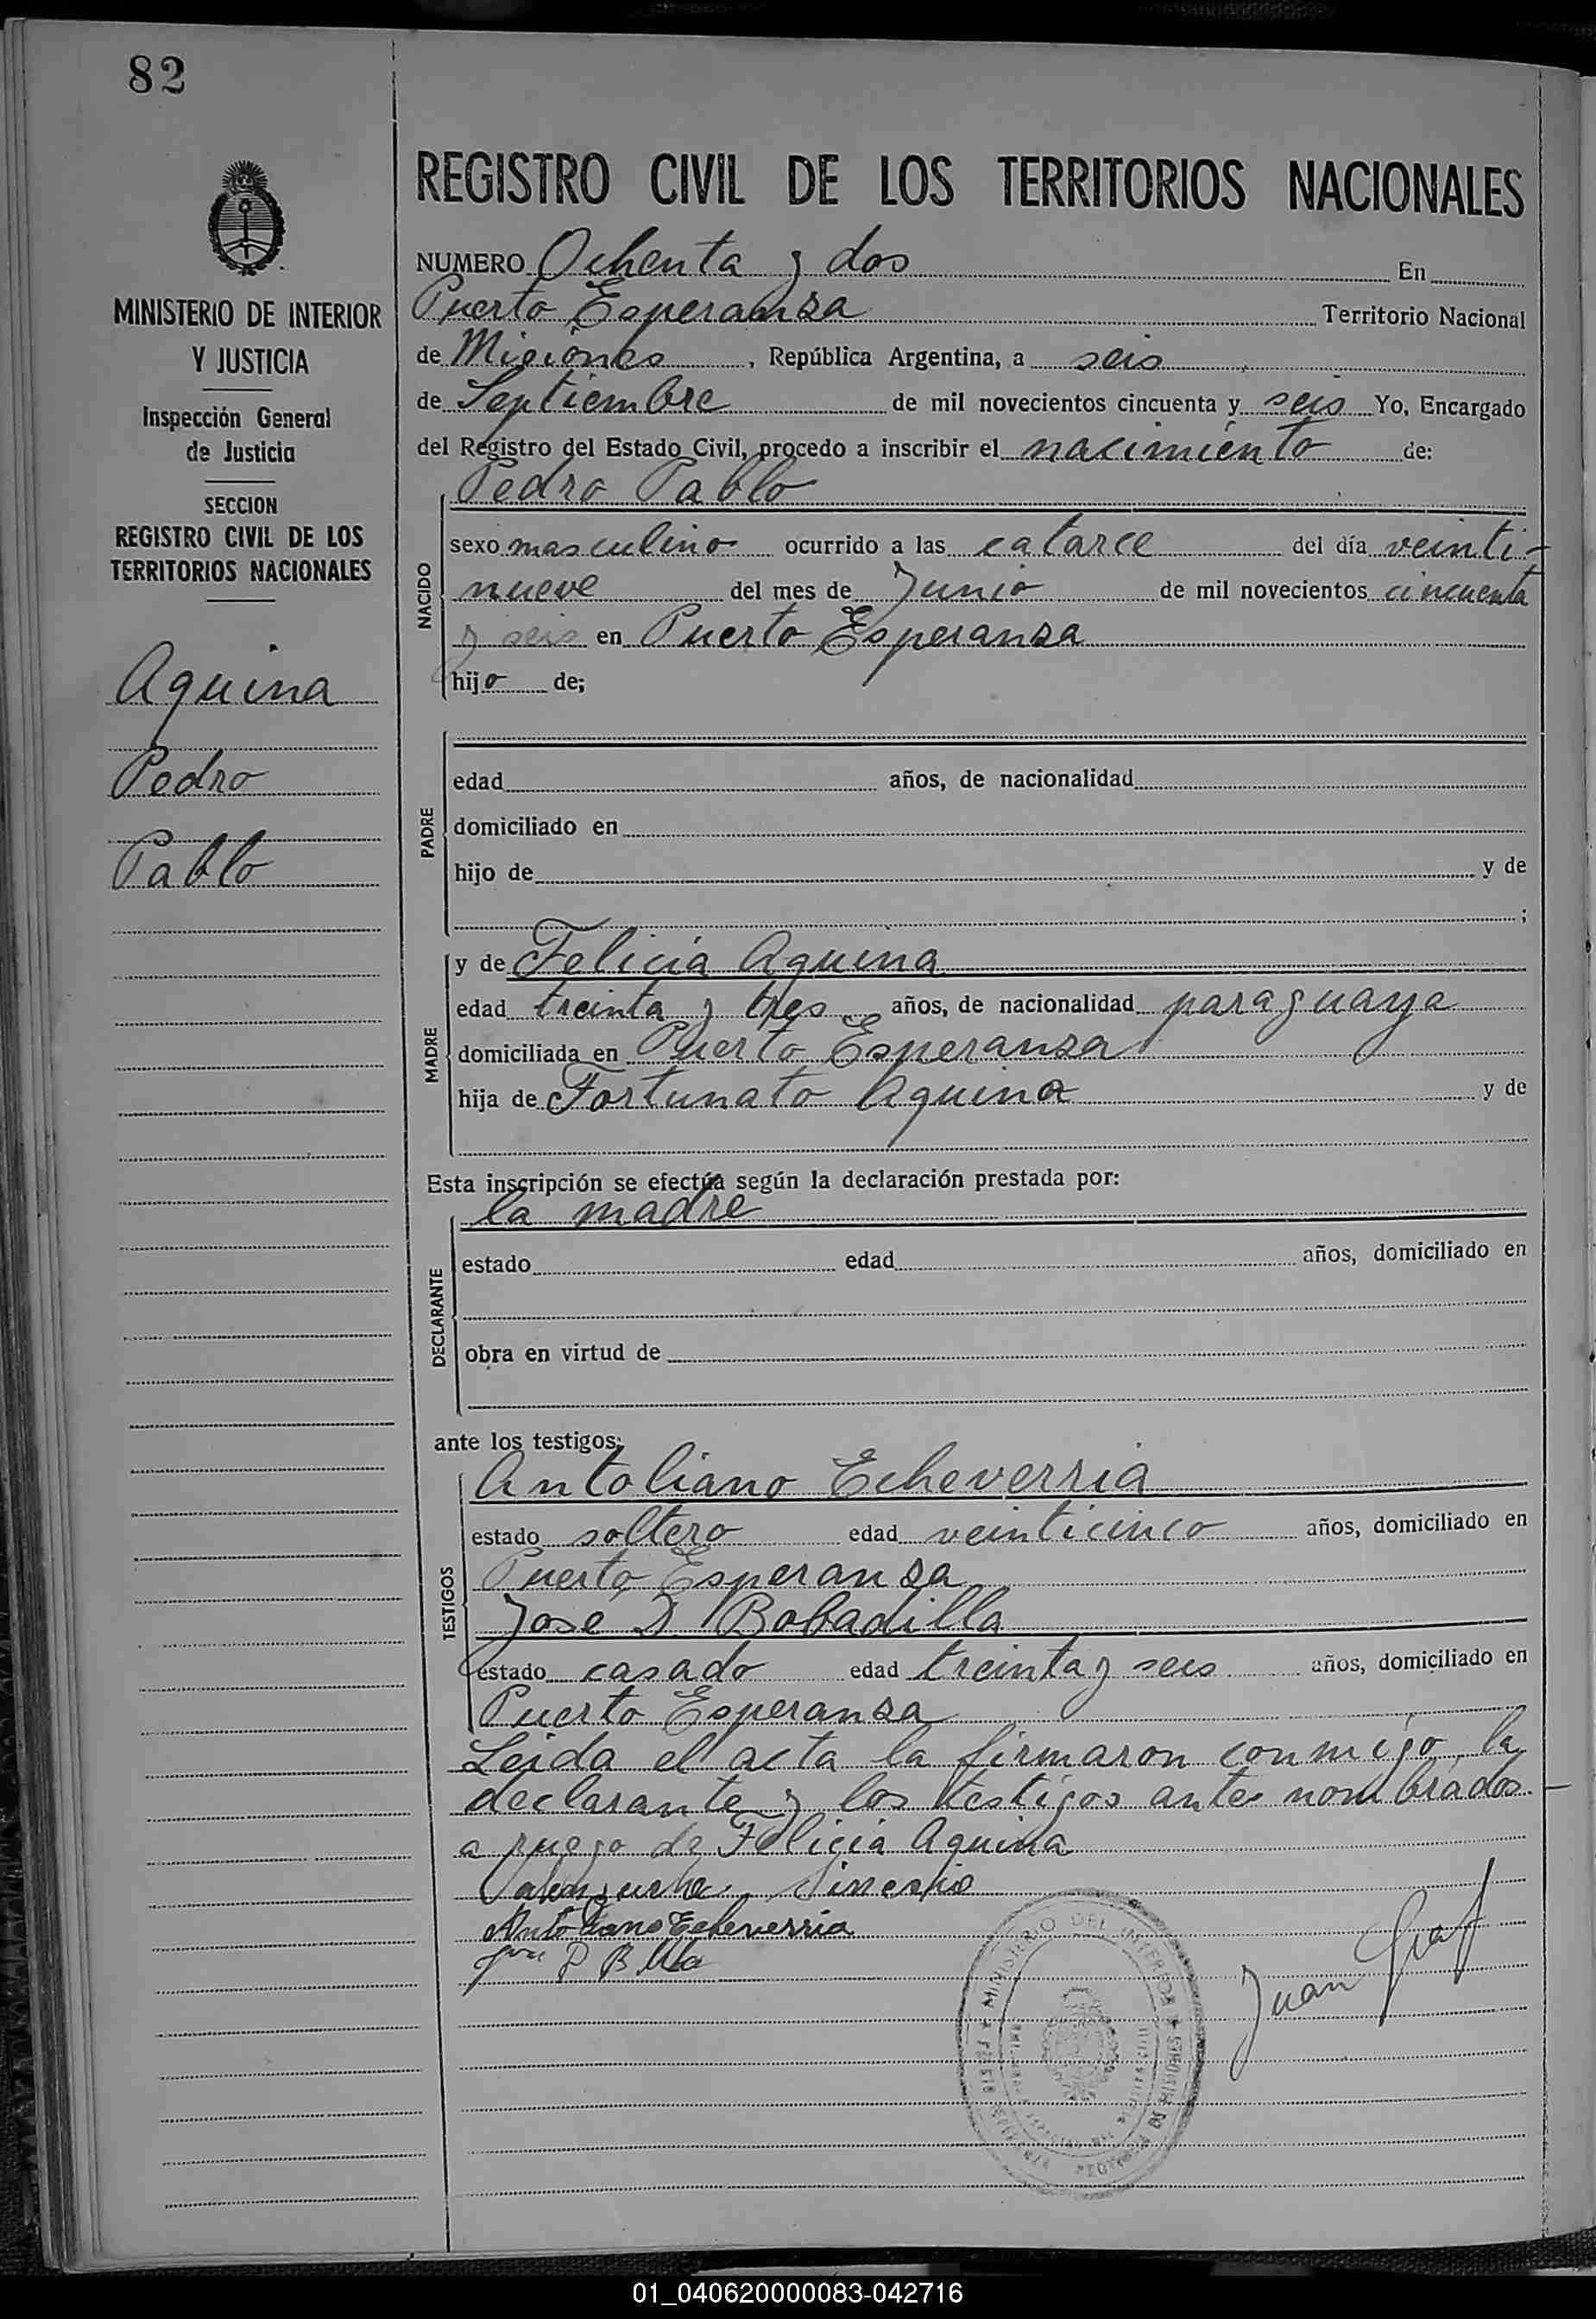 82
REGISTRO CIVIL DE LOS TERRITORIOS NACIONALES
MINISTERIO DE INTERIOR
Y JUSTICIA
Inspección General
de Justicia
SECCION
REGISTRO CIVIL DE LOS
TERRITORIOS NACIONALES
Aquina
Pedro
Pablo
NUMERO Ochenta y dos En
Puerto Esperanza Territorio Nacional
de Misiones, República Argentina, a seis
de Septiembre de mil novecientos cincuenta y seis Yo, Encargado
del Registro del Estado Civil, procedo a inscribir el nacimiento de:
NACIDO
Pedro Pablo
sexo masculino ocurrido a las catorce del día veinti-
nueve del mes de Junio de mil novecientos cincuenta
y seis en Puerto Esperanza
hijo de;
PADRE
edad años, de nacionalidad
domiciliado en
hijo de y de
;
MADRE
y de Felicia Aquina
edad treinta y tres años, de nacionalidad paraguaya
domiciliada en Puerto Esperanza
hija de Fortunato Aquina y de
Esta inscripción se efectúa según la declaración prestada por:
DECLARANTE
la madre
estado edad años, domiciliado en
obra en virtud de
ante los testigos;
TESTIGOS
Antoliano Echeverria
estado soltero edad veinticinco años, domiciliado en
Puerto Esperanza
José D. Bobadilla
estado casado edad treinta y seis años, domiciliado en
Puerto Esperanza
Leida el acta la firmaron conmigo, la
declarante y los testigos antes nombrados.—
a ruego de Felicia Aquina
Antoliano Echeverria
Juan Graf
MINISTERIO DEL INTERIOR
01_040620000083-042716